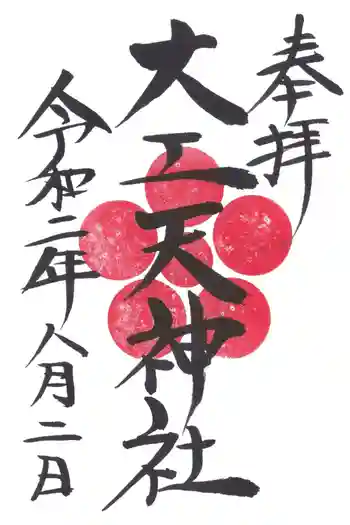 奉拝
大工天神社
令和二年 八月二日